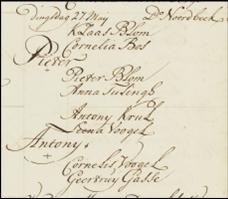 Dingsdag 27 May Ds Noordbeek
Klaas Blom
Cornelia Bos
Pieter
Pieter Blom
Anna Tulingh
Antony Kruk
Leena Voogel
Antony
Cornelis Voogel
Geertruy Gasse